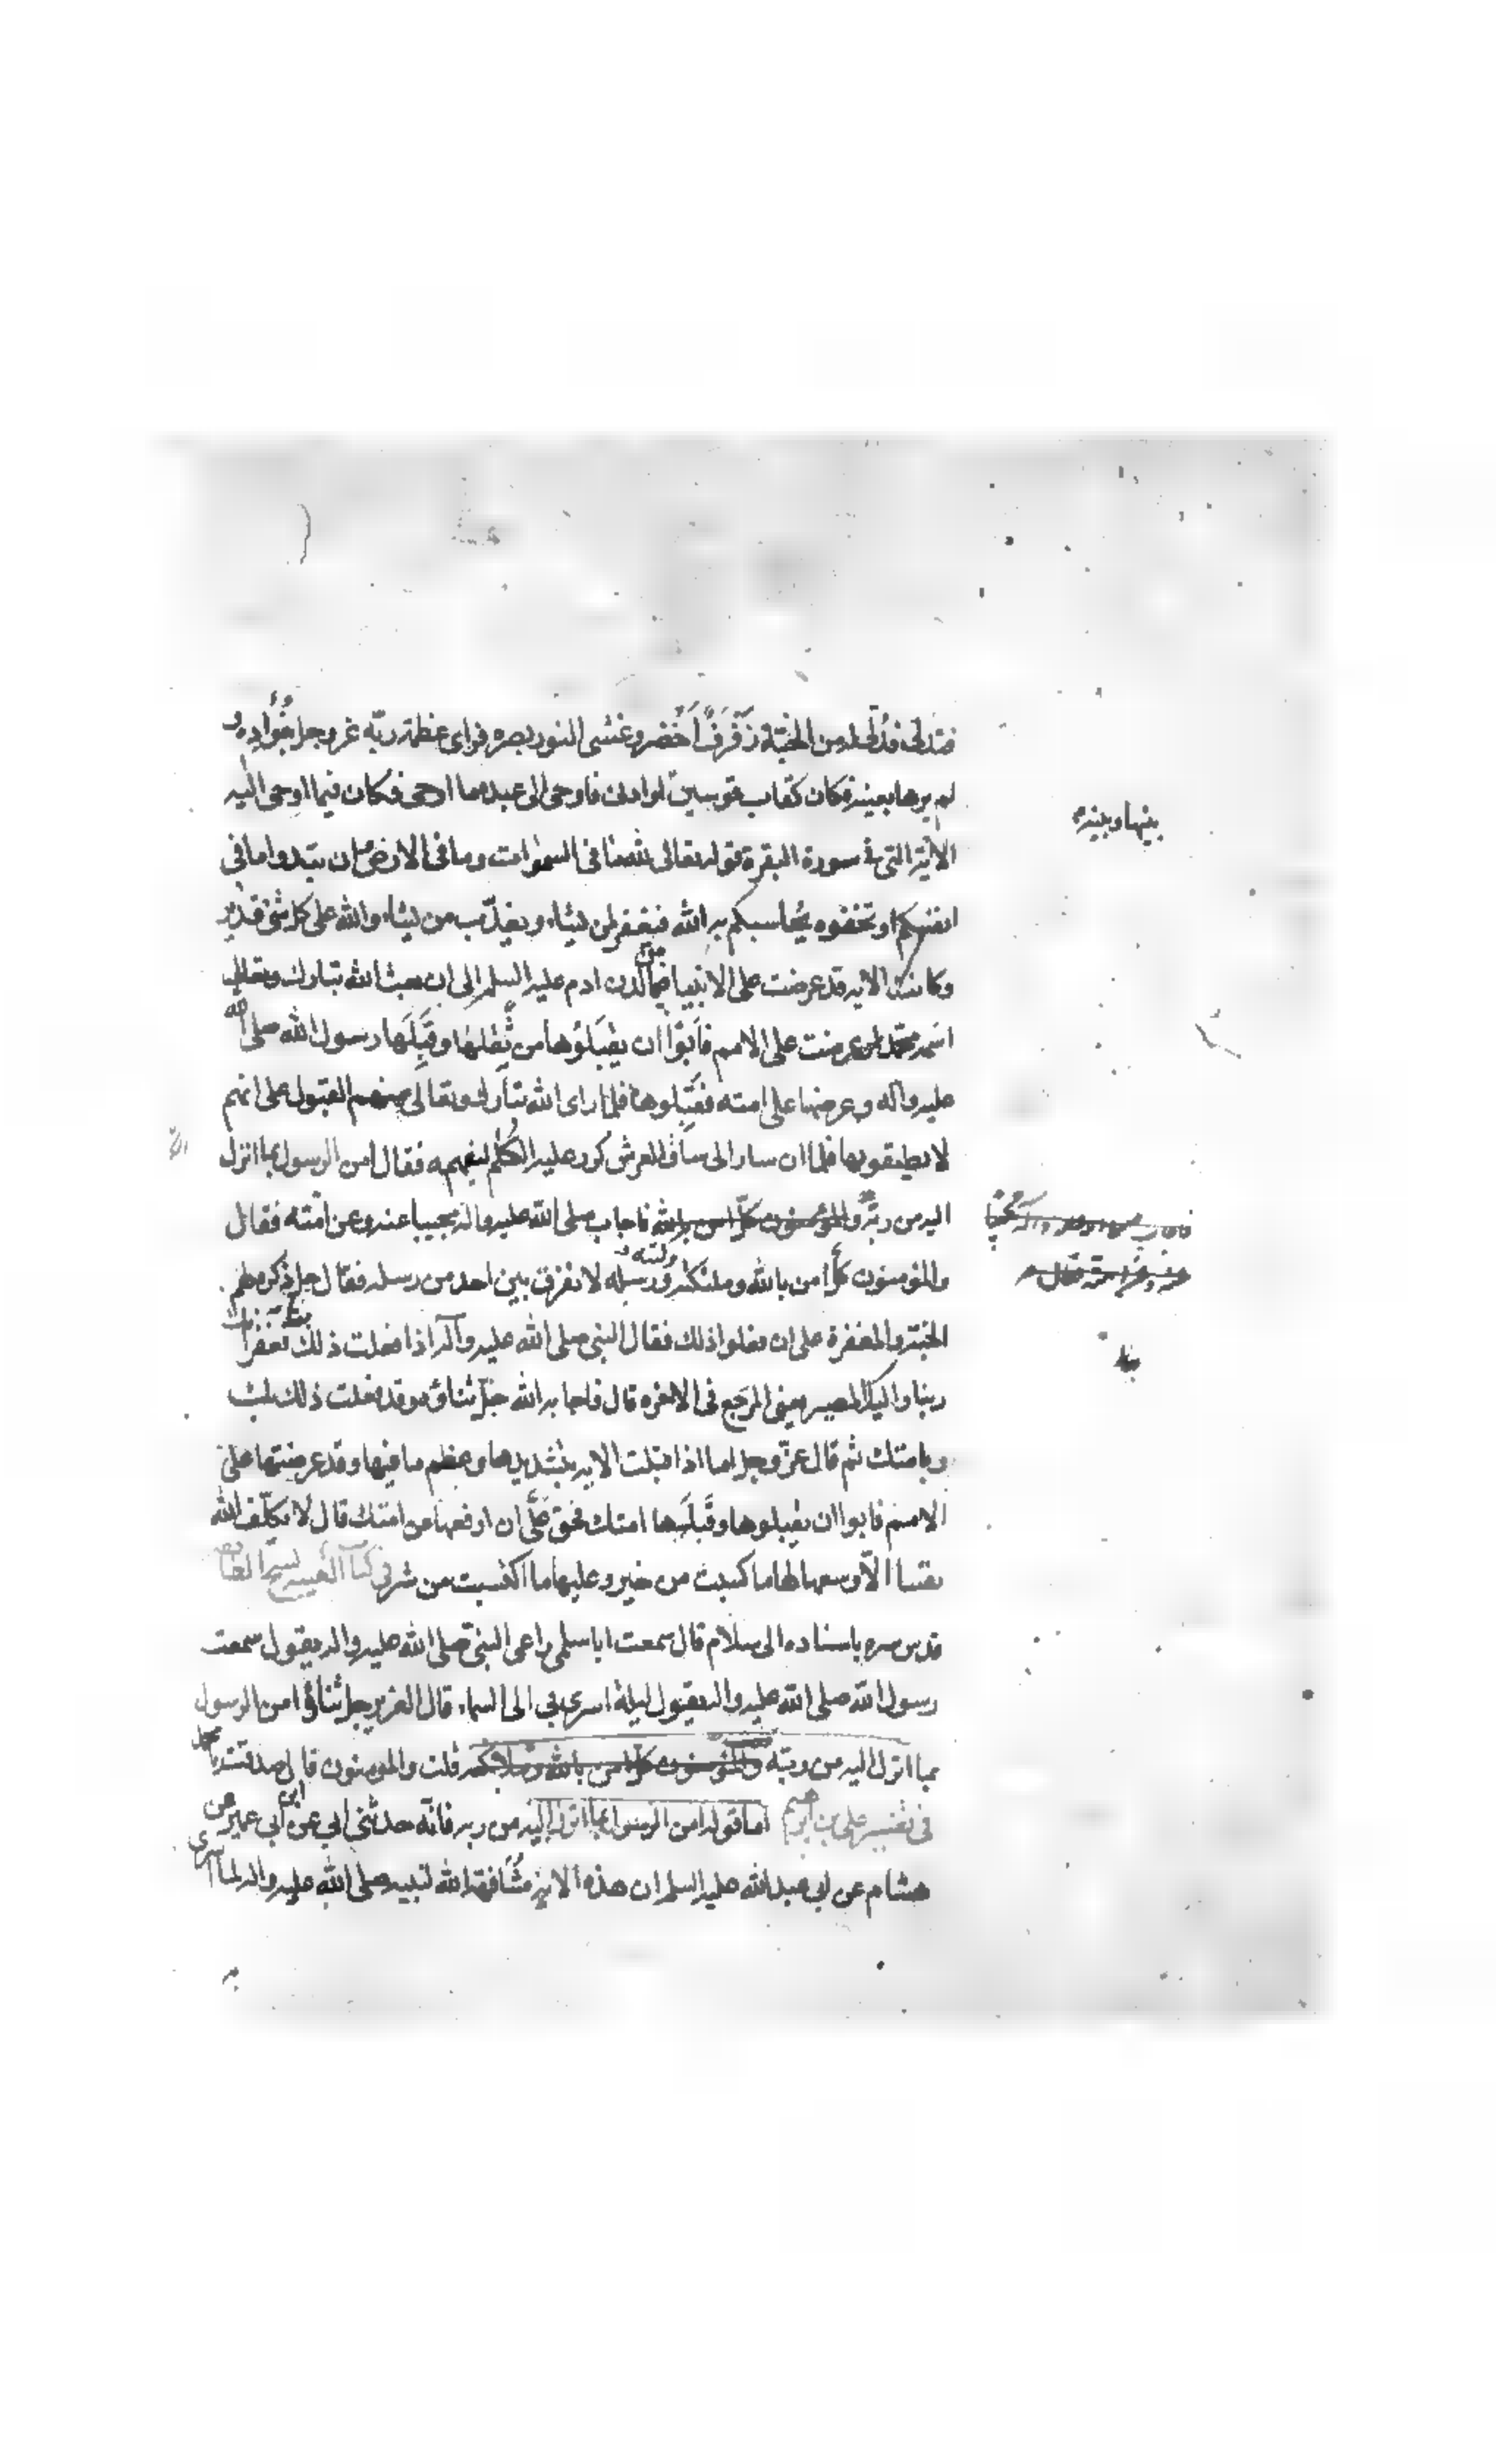 فتدلى فدُلّى له من الجنّة رَفْرَفًا أَخْضر وغشى النور بصره فراى عظمة ربّه عز وجل بفُؤادِه و
لم يرها بعينه فكان كقاب قوسين او ادنى فاوحى الى عبده ما اوحى فكان فيما اوحى اليه
بينها وبينه
الآية التى فى سورة البقرة قوله تعالى لله ما فى السموات وما فى الارض وان تبدوا ما فى
انفسكم او تخفوه يحاسبكم به الله فيغفر لمن يشاء ويعذّب من يشاء والله على كل شئ قدير
وكانت الاية قد عرضت على الانبيا من لدن ادم عليه السلم الى ان بعث الله تبارك وتعالى
اسمه محمد وعرضت على الامم فأبَوْا ان يقبَلوُها من ثِقْلها وقَبِلَها رسول الله صلى الله
عليه وآله وعرضها على امته فقَبِلوها فلما راى الله تبارك وتعالى منهم القبول على انهم
لا يطيقونها فلما ان سار الى ساق العرش كرر عليه الكلام ليفهمه فقال امن الرسول بما انزل
اليه من ربّه والمؤمنون كلّ امن بالله فاجاب صلى الله عليه واله مجيبا عنه وعن امّته فقال
والمؤمنون كلّ امن بالله وملئكته وكتبه ورسله لا نفرق بين احد من رسله فقال جل ذكره لهم
الجنّة والمغفرة على ان فعلوا ذلك فقال النبى صلى الله عليه وآله اذا فعلت ذلك بنا فغفرانك
ربنا واليك المصير يعنى المرجع فى الاخرة قال فاجابه الله جلّ ثناؤه وقد فعلت ذلك بك
وبامتك ثم قال عزّ وجل اما اذا قبلت الاية بتشديدها وعظم ما فيها وقد عرضتها على
الامم فابوا ان يقبلوها وقَبِلَتها امتك فحق علىّ ان ارفعها عن امتك قال لا يكلّف الله
نفسا الّا وسعها لها ما كسبت من خير وعليها ما اكتسبت من شر فى كتاب الغيبة لشيخ الطائفة
قدس سره باسناده الى سلام قال سمعت ابا سلمى راعى النبىّ صلى الله عليه واله يقول سمعت
رسول الله صلى الله عليه واله يقول ليلة اسرى بى الى السماء قال العزيز جل ثناؤه امن الرسول
بما انزل اليه من ربّه والمؤمنون كلّ امن بالله وملائكته قلت والمؤمنون قال صدقت يا محمد
فى تفسير على بن ابرهيم اما قوله امن الرسول بما انزل اليه من ربه فانّه حدثنى ابى عن ابن أبى عمير عن
هشام عن ابى عبد الله عليه السلم ان هذه الاية مُشَافهة الله لنبيه صلى الله عليه واله لما اسرى